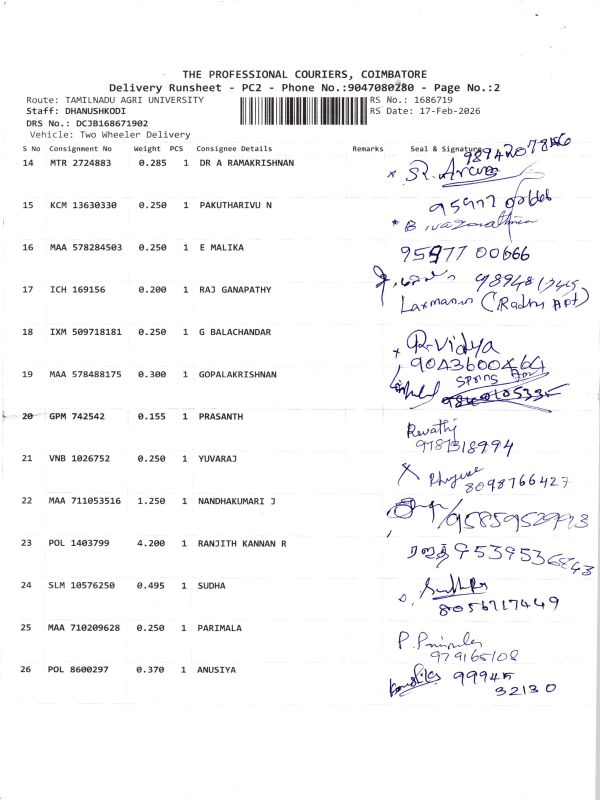 THE PROFESSIONAL COURIERS, COIMBATORE
Delivery Runsheet - PC2 - Phone No.:9047080280 - Page No.:2
Route: TAMILNADU AGRI UNIVERSITY RS No.: 1686719
Staff: DHANUSHKODI RS Date: 17-Feb-2026
DRS No.: DCJB168671902
Vehicle: Two Wheeler Delivery
S No Consignment No Weight PCS Consignee Details Remarks Seal & Signature
14 MTR 2724883 0.285 1 DR A RAMAKRISHNAN
15 KCM 13630330 0.250 1 PAKUTHARIVU N 95977 00666
16 MAA 578284503 0.250 1 E MALIKA 95977 00666
17 ICH 169156 0.200 1 RAJ GANAPATHY
Laxmanan (Radhu Apt)
18 IXM 509718181 0.250 1 G BALACHANDAR R-Vidya
9043600464
19 MAA 578488175 0.300 1 GOPALAKRISHNAN Spring
20 GPM 742542 0.155 1 PRASANTH Revathi
9787318994
21 VNB 1026752 0.250 1 YUVARAJ
8098766427
22 MAA 711053516 1.250 1 NANDHAKUMARI J 9585952993
23 POL 1403799 4.200 1 RANJITH KANNAN R
24 SLM 10576250 0.495 1 SUDHA Sudha
8056717449
25 MAA 710209628 0.250 1 PARIMALA
979165108
26 POL 8600297 0.370 1 ANUSIYA 99945
32130